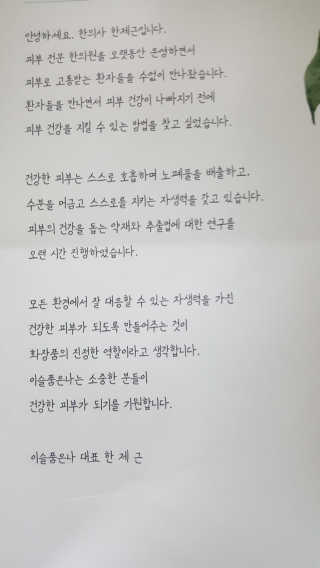 안녕하세요. 한의사 한제근입니다.
피부 전문 한의원을 오랫동안 운영하면서
피부로 고통받는 환자들을 수없이 만나왔습니다.
환자들을 만나면서 피부 건강이 나빠지기 전에
피부 건강을 지킬 수 있는 방법을 찾고 싶었습니다.
건강한 피부는 스스로 호흡하며 노폐물을 배출하고,
수분을 머금고 스스로를 지키는 자생력을 갖고 있습니다.
피부의 건강을 돕는 약재와 추출법에 대한 연구를
오랜 시간 진행하였습니다.
모든 환경에서 잘 대응할 수 있는 자생력을 가진
건강한 피부가 되도록 만들어주는 것이
화장품의 진정한 역할이라고 생각합니다.
이슬품은나는 소중한 분들이
건강한 피부가 되기를 기원합니다.
이슬품은나 대표 한 제 근